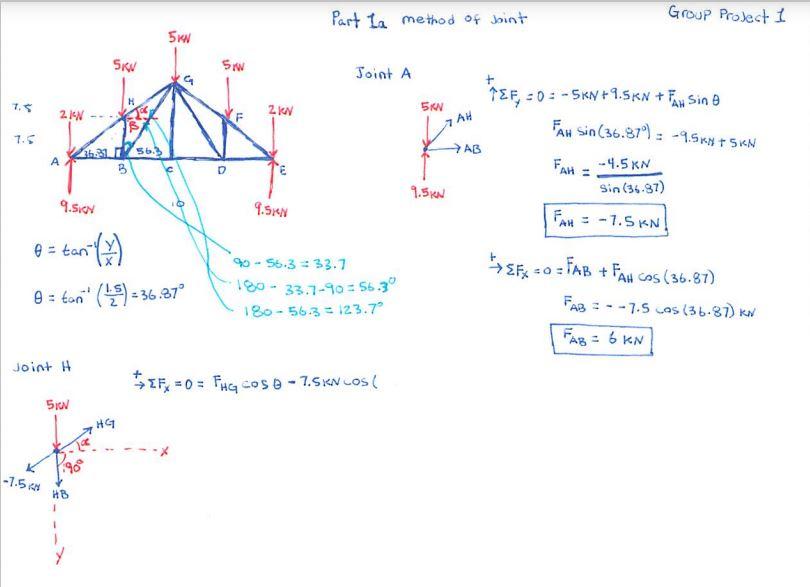 Part 1a method of Joint
Group Project 1
5KN
5KN
5KN
2KN
2KN
7.5
7.5
G
H
α
β
F
A
36.87
56.3
B
C
D
E
9.5KN
9.5KN
10
θ = tan⁻¹(y/x)
θ = tan⁻¹(1.5/2) = 36.87°
90 - 56.3 = 33.7
180 - 33.7 - 90 = 56.3°
180 - 56.3 = 123.7°
Joint A
5KN
AH
AB
9.5KN
+↑ΣFy = 0 = -5KN + 9.5KN + FAH Sin θ
FAH Sin(36.87°) = -9.5KN + 5KN
FAH = -4.5KN / sin(36.87)
FAH = -7.5KN
+→ΣFx = 0 = FAB + FAH cos(36.87)
FAB = - -7.5 cos(36.87) KN
FAB = 6 KN
Joint H
+→ΣFx = 0 = FHG cos θ - 7.5KN cos(
5KN
HG
α
x
90°
-7.5KN
HB
y